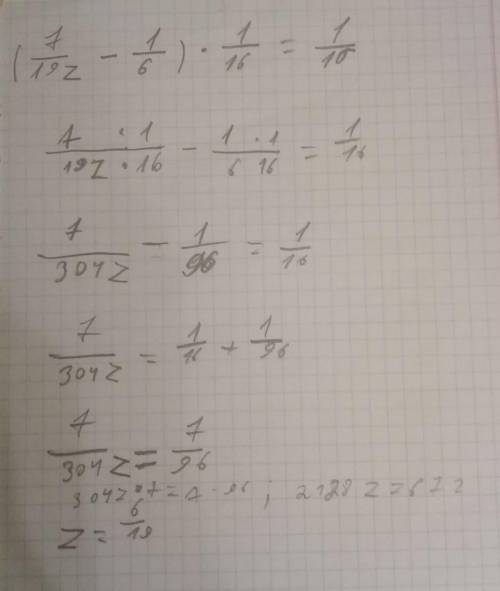 (7/19z - 1/6) · 1/16 = 1/16
7 · 1/19z · 16 - 1 · 1/6 16 = 1/16
7/304z - 1/96 = 1/16
7/304z = 1/16 + 1/96
7/304z = 7/96
304z · 7 = 7 · 96 ; 2128z = 672
z = 6/19